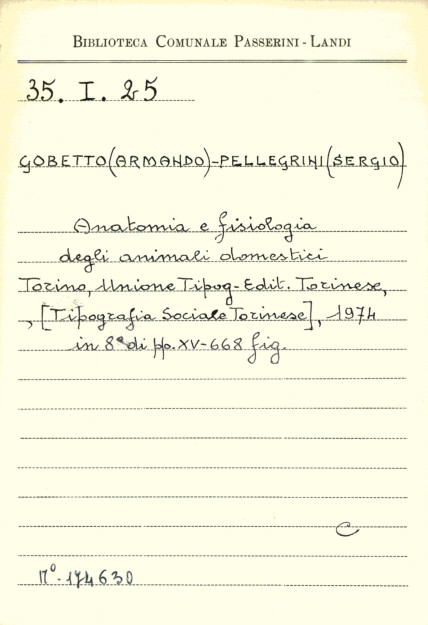 BIBLIOTECA COMUNALE PASSERINI-LANDI
35. I. 25
GOBETTO(ARMANDO)-PELLEGRINI(SERGIO)
Anatomia e fisiologia
degli animali domestici
Torino, Unione Tipog-Edit. Torinese,
, [Tipografia Sociale Torinese], 1974
in 8° di pp. XV-668 fig.
C
N°. 174630